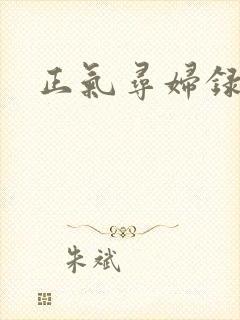 正氣尋婦録
朱斌